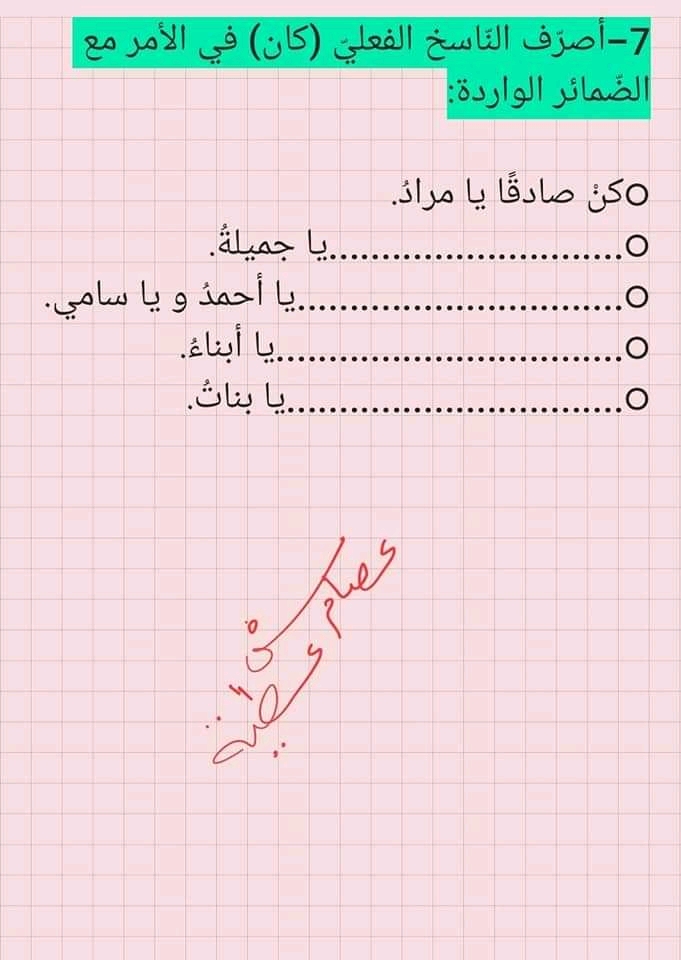 7-أصرّف النّاسخ الفعليّ (كان) في الأمر مع
الضّمائر الواردة:
○كنْ صادقًا يا مرادُ.
○............................يا جميلةُ.
○...............................يا أحمدُ و يا سامي.
○.................................يا أبناءُ.
○................................يا بناتُ.